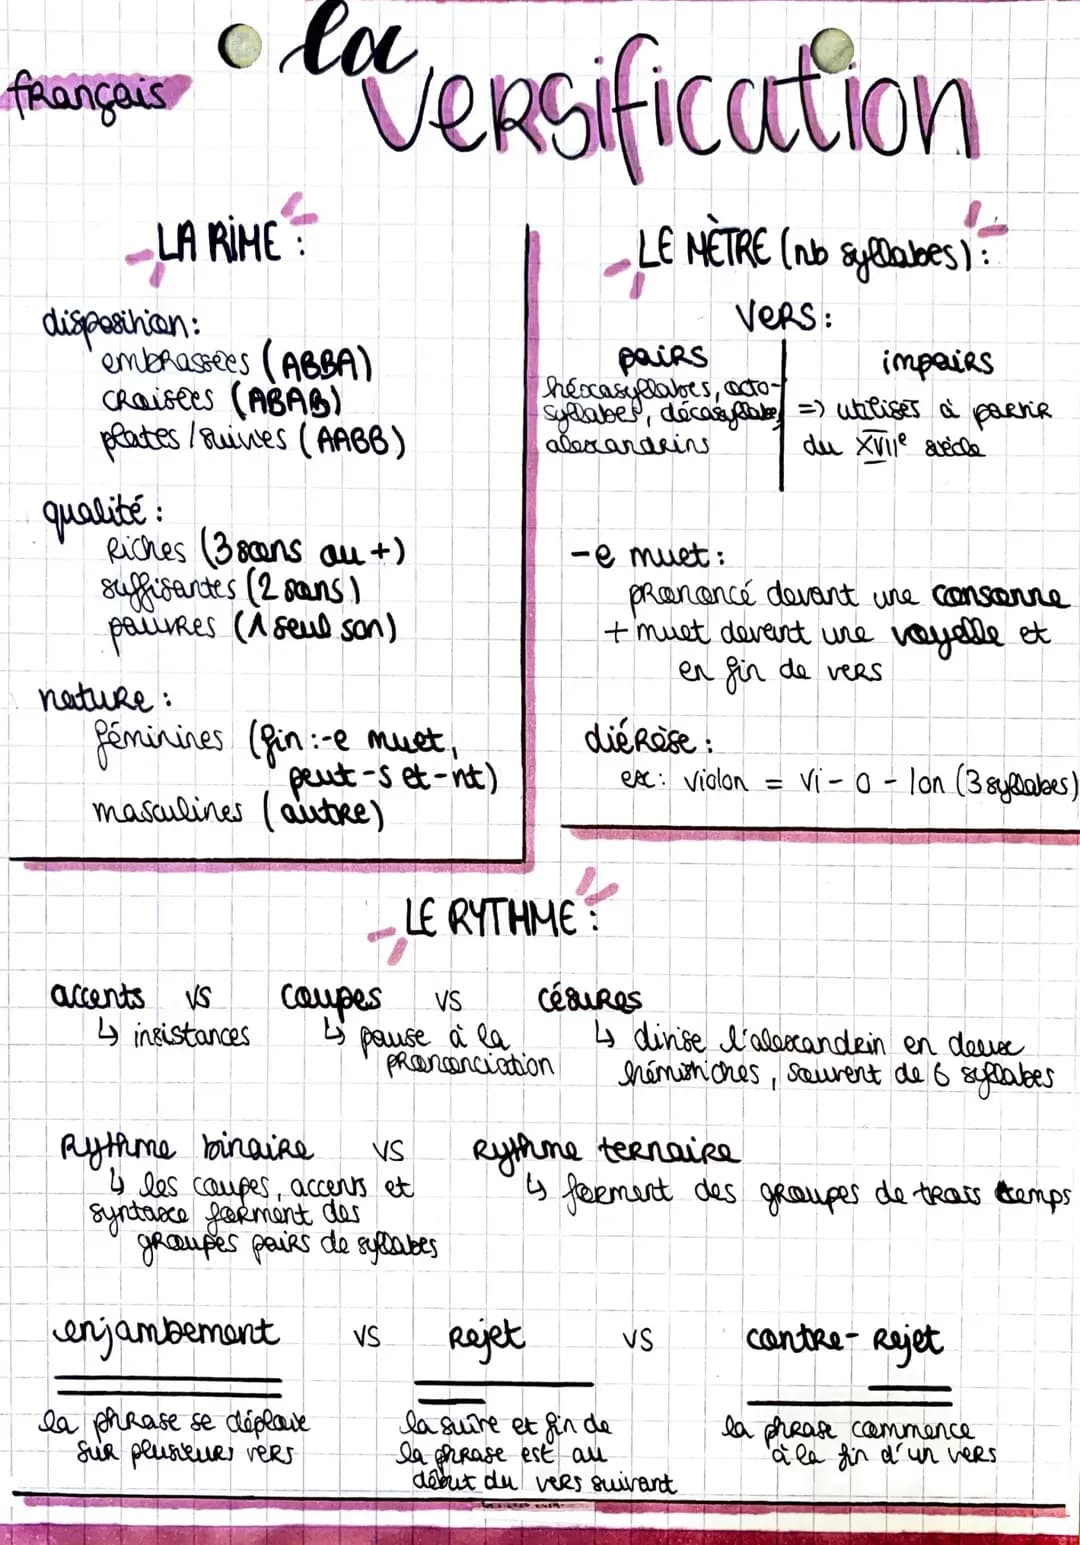 français
la
versification
LA RIME :
disposition:
embrassées (ABBA)
croisées (ABAB)
plates / suivies (AABB)
qualité :
riches (3 sons au +)
suffisantes (2 sons)
pauvres (1 seul son)
nature :
féminines (fin :-e muet,
peut -s et -nt)
masculines (autre)
LE MÈTRE (nb syllabes) :
vers :
pairs
héxasyllabes, octo-
syllabes, décasyllabe,
alexandrins
impairs
=> utilisés à partir
du XVIIe siècle
-e muet :
prononcé devant une consonne
+ muet devant une voyelle et
en fin de vers
diérèse :
ex : violon = vi - o - lon (3 syllabes)
LE RYTHME :
accents vs coupes vs césures
↳ insistances
↳ pause à la
prononciation
↳ divise l'alexandrin en deux
hémistiches, souvent de 6 syllabes
Rythme binaire vs Rythme ternaire
↳ les coupes, accents et
syntaxe forment des
groupes pairs de syllabes
↳ forment des groupes de trois temps
enjambement vs rejet vs contre-rejet
la phrase se déploie
sur plusieurs vers
la suite et fin de
la phrase est au
début du vers suivant
la phrase commence
à la fin d'un vers